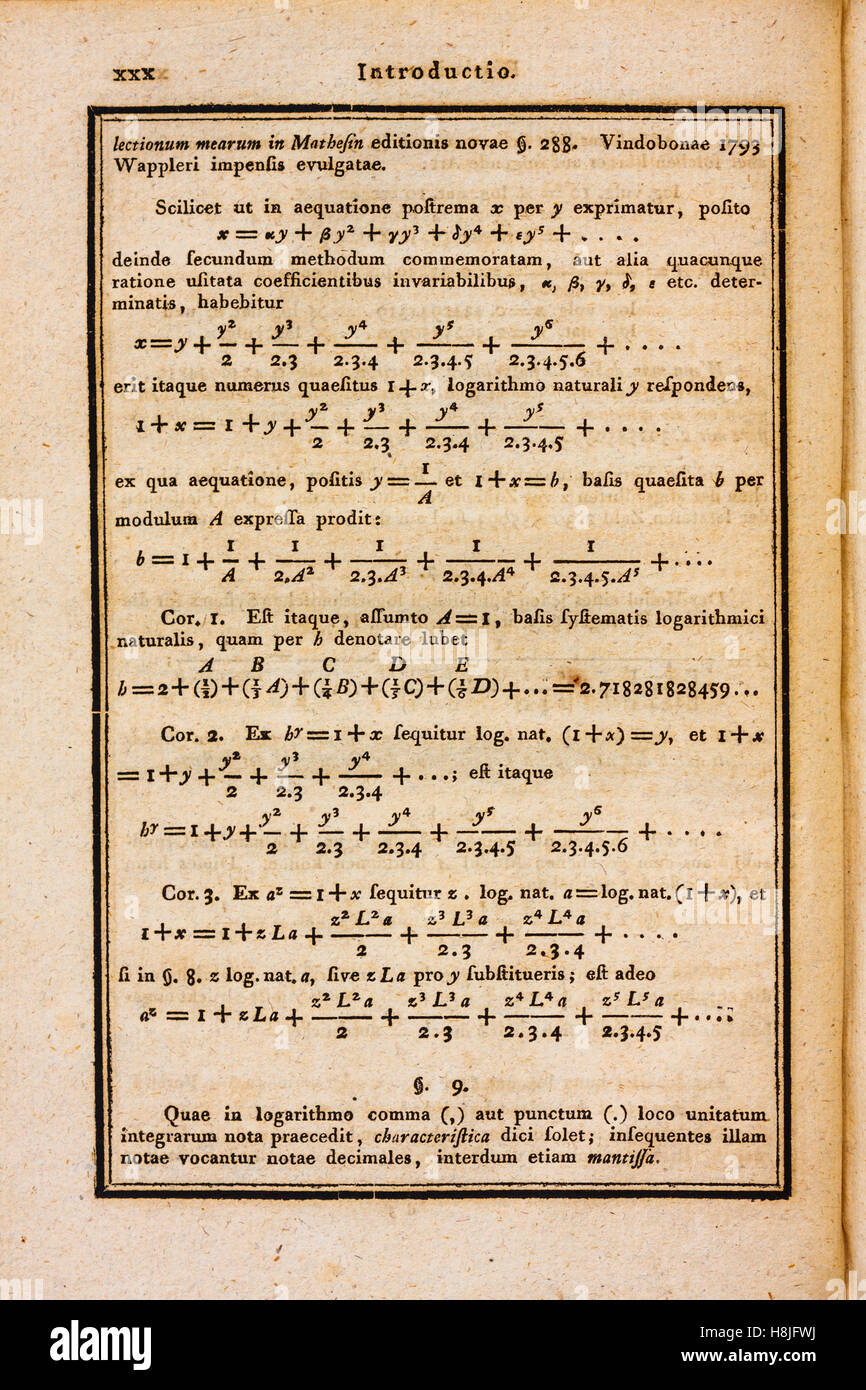 xxx Introductio.
lectionum mearum in Matheſin editionis novae §. 288. Vindobonae 1793
Wappleri impenſis evulgatae.
Scilicet ut in aequatione poſtrema x per y exprimatur, poſito
x = αy + βy² + γy³ + δy⁴ + εy⁵ + . . . .
deinde ſecundum methodum commemoratam, aut alia quacunque
ratione uſitata coefficientibus invariabilibus, α, β, γ, δ, ε etc. deter-
minatis, habebitur
x=y + y²/2 + y³/2.3 + y⁴/2.3.4 + y⁵/2.3.4.5 + y⁶/2.3.4.5.6 + . . . .
erit itaque numerus quaeſitus 1+x, logarithmo naturali y reſpondens,
1+x = 1+y + y²/2 + y³/2.3 + y⁴/2.3.4 + y⁵/2.3.4.5 + . . . .
ex qua aequatione, poſitis y = 1/A et 1+x=b, baſis quaeſita b per
modulum A expreſſa prodit:
b = 1 + 1/A + 1/2.A² + 1/2.3.A³ + 1/2.3.4.A⁴ + 1/2.3.4.5.A⁵ + . . . .
Cor. 1. Eſt itaque, aſſumto A=1, baſis ſyſtematis logarithmici
naturalis, quam per h denotare lubet
A B C D E
h=2+(½)+(⅓A)+(¼B)+(⅕C)+(⅙D)+...=2.718281828459...
Cor. 2. Ex hʸ=1+x ſequitur log. nat. (1+x)=y, et 1+x
= 1+y + y²/2 + y³/2.3 + y⁴/2.3.4 + . . . ; eſt itaque
hʸ = 1+y + y²/2 + y³/2.3 + y⁴/2.3.4 + y⁵/2.3.4.5 + y⁶/2.3.4.5.6 + . . . .
Cor. 3. Ex aᶻ = 1+x ſequitur z . log. nat. a=log. nat. (1+x), et
1+x = 1+zLa + z²L²a/2 + z³L³a/2.3 + z⁴L⁴a/2.3.4 + . . . .
ſi in §. 8. z log. nat. a, ſive zLa pro y ſubſtitueris; eſt adeo
aᶻ = 1+zLa + z²L²a/2 + z³L³a/2.3 + z⁴L⁴a/2.3.4 + z⁵L⁵a/2.3.4.5 + . . . .
§. 9.
Quae in logarithmo comma (,) aut punctum (.) loco unitatum
integrarum nota praecedit, characteriſtica dici ſolet; inſequentes illam
notae vocantur notae decimales, interdum etiam mantiſſa.
alamy
Image ID: H8JFWJ
www.alamy.com